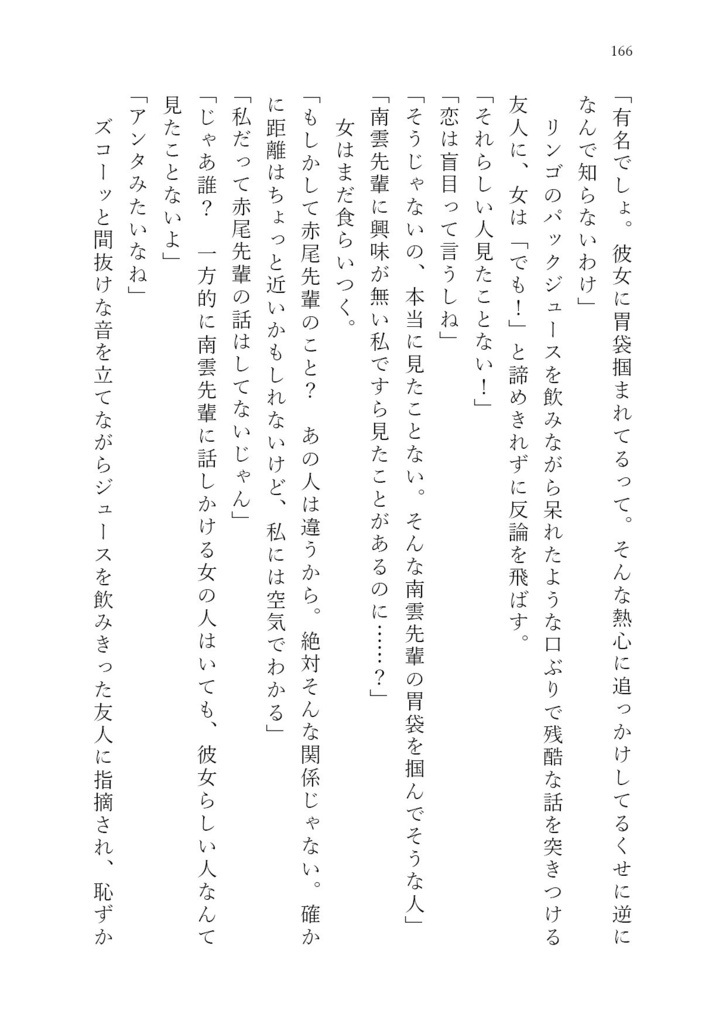 166
「有名でしょ。彼女に胃袋掴まれてるって。そんな熱心に追っかけしてるくせに逆に
なんで知らないわけ」
　リンゴのパックジュースを飲みながら呆れたような口ぶりで残酷な話を突きつける
友人に、女は「でも！」と諦めきれずに反論を飛ばす。
「それらしい人見たことない！」
「恋は盲目って言うしね」
「そうじゃないの、本当に見たことない。そんな南雲先輩の胃袋を掴んでそうな人」
「南雲先輩に興味が無い私ですら見たことがあるのに……？」
　女はまだ食らいつく。
「もしかして赤尾先輩のこと？　あの人は違うから。絶対そんな関係じゃない。確か
に距離はちょっと近いかもしれないけど、私には空気でわかる」
「私だって赤尾先輩の話はしてないじゃん」
「じゃあ誰？　一方的に南雲先輩に話しかける女の人はいても、彼女らしい人なんて
見たことないよ」
「アンタみたいなね」
　ズコーッと間抜けな音を立てながらジュースを飲みきった友人に指摘され、恥ずか